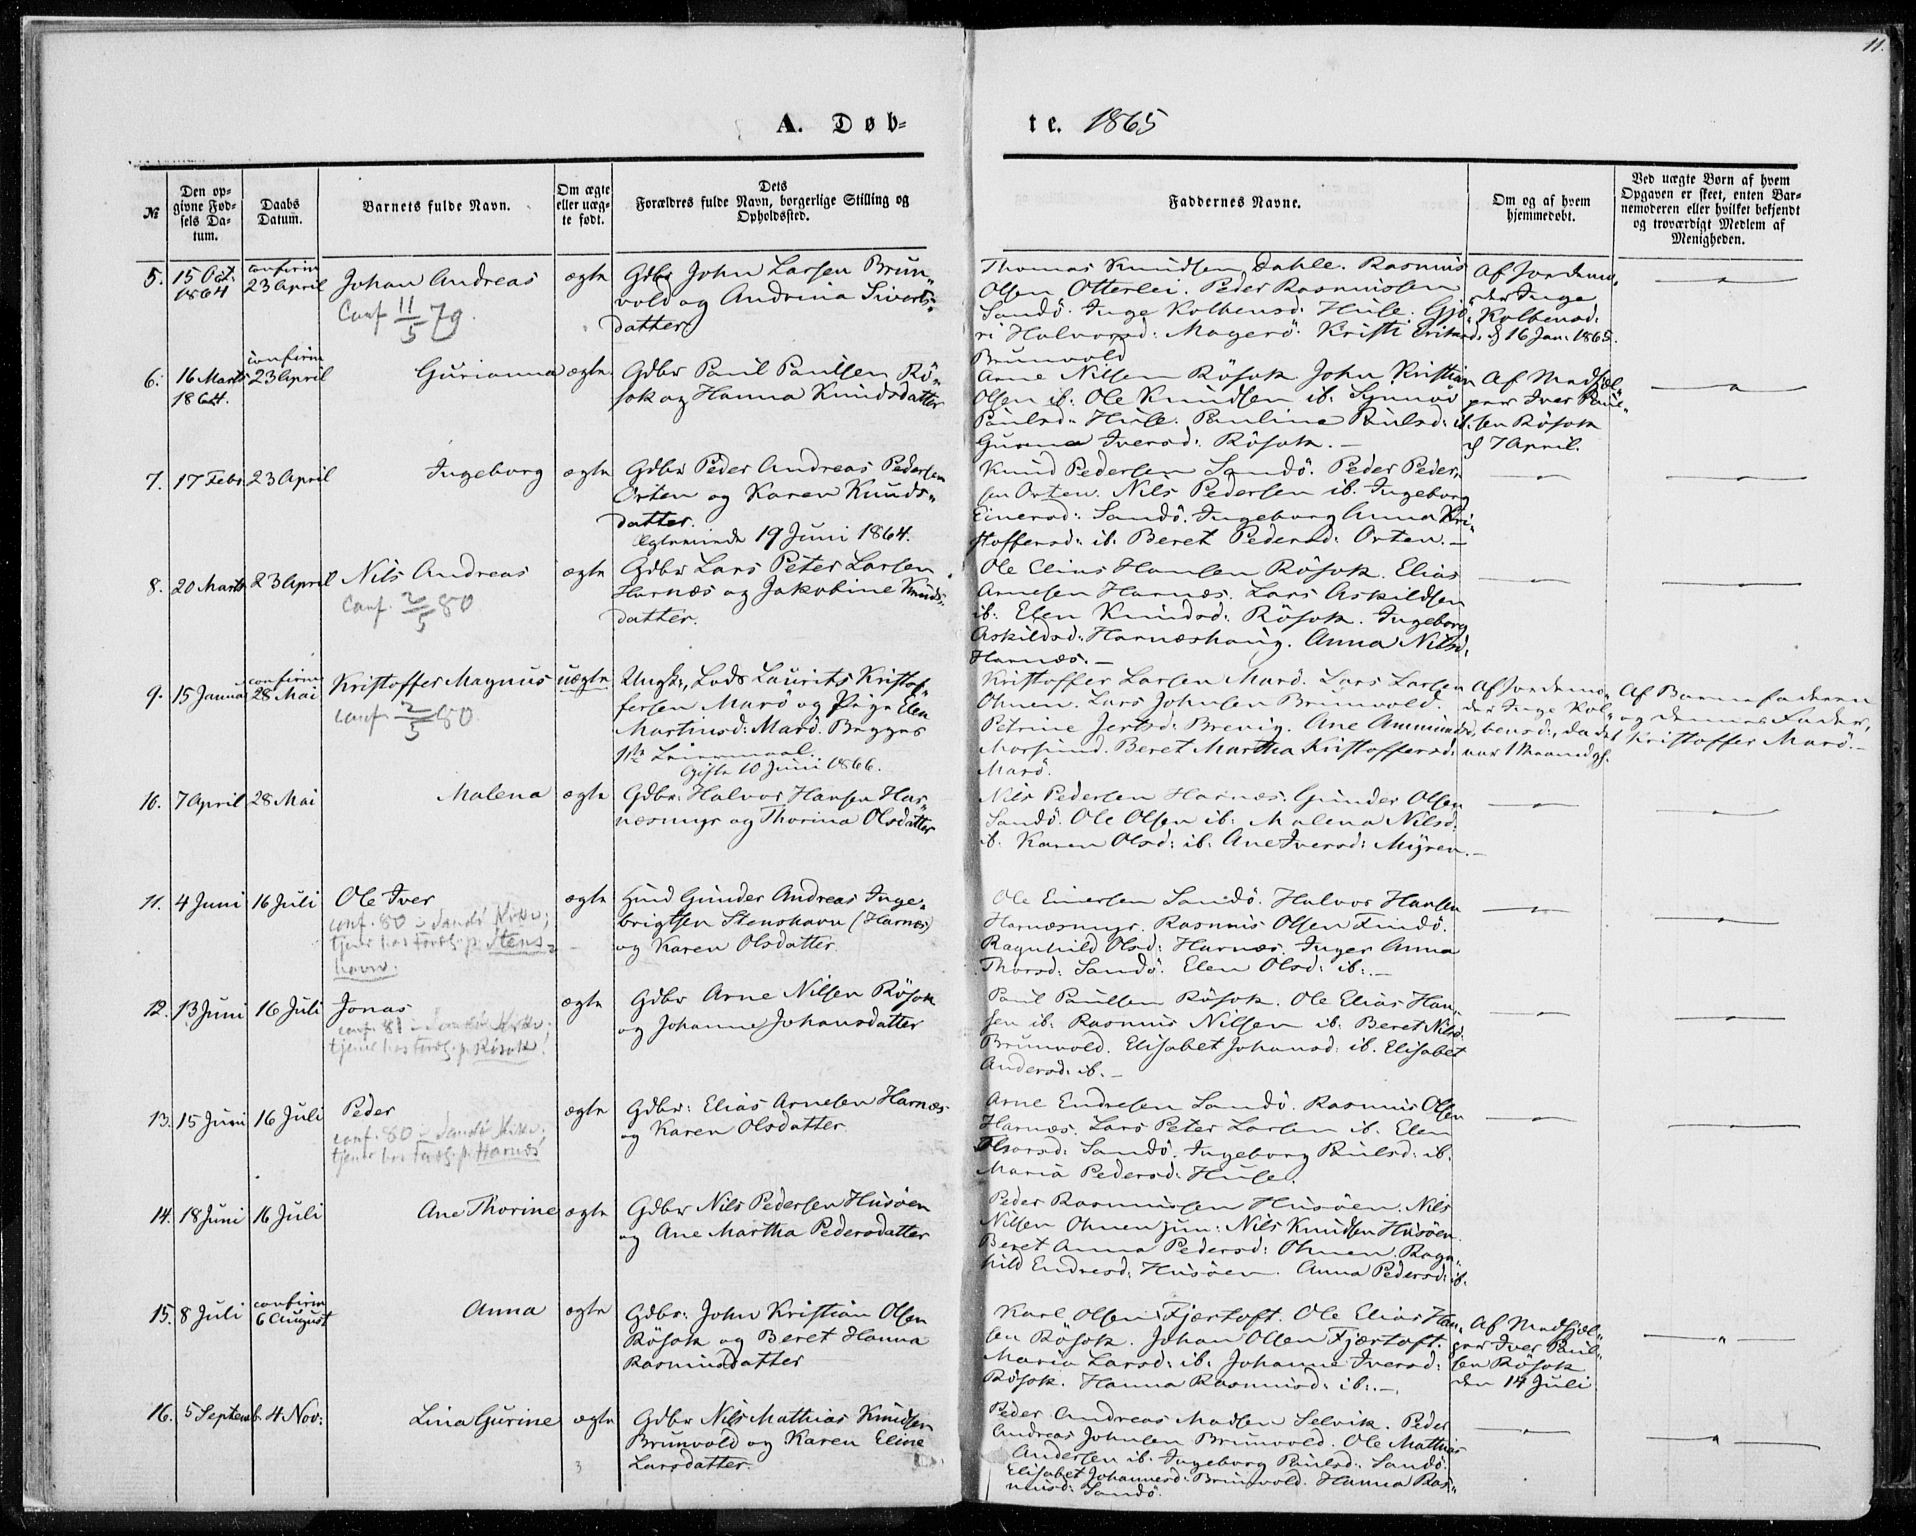 11.
A. Døb-
te. 1865
№
Den op-
givne Fød-
sels Da-
tum.
Daabs
Datum.
Barnets fulde Navn.
Om ægte
eller uæg-
te født.
Dets
Forældres fulde Navn, borgerlige Stilling og
Opholdssted.
Faddernes Navne.
Om og af hvem
hjemmedøbt.
Ved uægte Børn af hvem
Opgaven er skeet, enten Bar-
nemoderen eller hvilket bekjendt
og troværdigt Medlem af
Menigheden.
5.
15 Oct.
1864
confirm
23 April
Johan Andreas
Conf 11/5 79.
ægte
Gdbr John Larsen Brun-
vold og Andrina Siverts-
datter
Thomas Knudsen Dahle. Rasmus
Olsen Otterlei. Peder Rasmussen
Sandö. Inge Kolbensd: Huse. Gjö-
ri Halvorsd: Magerö. Kristi
Brunvold
Af Jordemo-
der Inge
Kolbensd:
d 16 Jan: 1865.
6.
16 Marts
1864.
confirm
23 April
Gurianna
ægte
Gdbr Paul Paulsen Rö-
sok og Hanna Knudsdatter
Arne Nilsen Rösok. John Kristian
Olsen ib: Ole Knudsen ib: Synnöv
Paulsd: Huse. Pauline Paulsd: ib.
Gurine Iversd: Rösok.
Af Medhjæl-
per Iver Paul-
sen Rösok
d 7 April.
7.
17 Febr.
23 April
Ingeborg
ægte
Gdbr Peder Andreas Pedersen
Orten og Karen Knuds-
datter.
Ægteviede 19 Juni 1864.
Knud Pedersen Sandö. Peder Peder-
sen Orten. Nils Pedersen ib. Ingeborg
Einersd: Sandö. Ingeborg Anna Kri-
stoffersd: ib. Beret Pedersd: Orten.
8.
20 Marts
23 April
Nils Andreas
Conf. 2/5 80
ægte
Gdbr Lars Peter Larsen
Harnæs og Jakobine Knuds-
datter.
Ole Elias Hansen Rösok. Elias
Arnesen Harnæs. Lars Askildsen
ib. Elen Knudsd: Rösok. Ingeborg
Askildsd: Harnæshaug. Anna Nilsd:
Harnæs.
9.
15 Januar
confirm
28 Mai
Kristoffer Magnus
conf 2/5 80.
uægte
Ungk., Lods Laurits Kristof-
fersen Marö og Pige Elen
Martinsd: Marö. Begges
1ste Leiermaal.
Gifte 10 Juni 1866.
Kristoffer Larsen Marö. Lars Larsen
Ohnen. Lars Johnsen Brunvold.
Petrine Jensd: Brevig. Ane Ammundsd:
Marsund. Beret Martha Kristoffersd:
Marö.
Af Jordemo-
der Inge Kol-
bensd:, da det
var 1 Maaned gl.
Af Barnefaderen
og dennes Fader,
Kristoffer Marö.
10.
7 April
28 Mai
Malena
ægte
Gdbr: Halvor Hansen Har-
næsmyr og Thorina Olsdatter
Nils Pedersen Harnæs. Gunder Olsen
Sandö. Ole Olsen ib: Malena Nilsd:
ib. Karen Olsd: ib. Ane Iversd: Myren.
11.
4 Juni
16 Juli
Ole Iver
conf. 80 i Sandö Kirke;
tjener hos Foræl. p. Stens-
havn.
ægte
Hmd Gunder Andreas Inge-
brigtsen Stenshavn (Harnæs)
og Karen Olsdatter
Ole Einersen Sandö. Halvor Hansen
Harnæsmyr. Rasmus Olsen Findö.
Ragnhild Olsd: Harnæs. Inger Anna
Thorsd: Sandö. Elen Olsd: ib:
12.
13 Juni
16 Juli
Jonas
conf. 81 i Sandö Kirke;
tjener hos Foræl. p. Rösok.
ægte
Gdbr Arne Nilsen Rösok
og Johanne Johansdatter
Paul Paulsen Rösok. Ole Elias Han-
sen ib: Rasmus Nilsen ib: Beret Nilsd:
Brunvold. Elisabet Johansd: ib. Elisabet
Andersd: ib.
13.
15 Juni
16 Juli
Peder
conf. 80 i Sandö Kirke;
tjener hos Foræl. p. Harnæs
ægte
Gdbr: Elias Arnesen Harnæs
og Karen Olsdatter
Arne Endresen Sandö. Rasmus Olsen
Harnæs. Lars Peter Larsen ib. Elen
Sandö. Ingeborg Paulsd: ib.
Maria Pedersd: Huse.
14.
18 Juni
16 Juli
Ane Thorine
ægte
Gdbr Nils Pedersen Husöen
og Ane Martha Pedersdatter
Peder Rasmussen Husöen. Nils
Nilsen Ohnen jun: Nils Knudsen Husöen.
Beret Anna Pedersd: Ohnen. Ragn-
hild Endresd: Husöen. Anna Pedersd: ib.
15.
8 Juli
confirm
6 August
Anna
ægte
Gdbr: John Kristian Olsen
Rösok og Beret Hanna
Rasmusdatter
Karl Olsen Fjærtoft. Ole Elias Han-
sen Rösok. Johan Olsen Fjærtoft.
Maria Larsd: ib: Johanne Iversd:
Rösok. Hanna Rasmusd: ib:
Af Medhjæl-
per Iver Paul-
sen Rösok
den 14 Juli
16.
5 Septemb.
4 Nov:
Lina Gurine
ægte
Gdbr Nils Mathias Knudsen
Brunvold og Karen Eline
Larsdatter.
Peder Andreas Madsen Selvik. Peder
Andreas Johnsen Brunvold. Ole Matthias
Andersen ib. Ingeborg Paulsd: Sandö.
Elisabet Johannesd: Brunvold. Hanna Ras-
musd: Sandö.